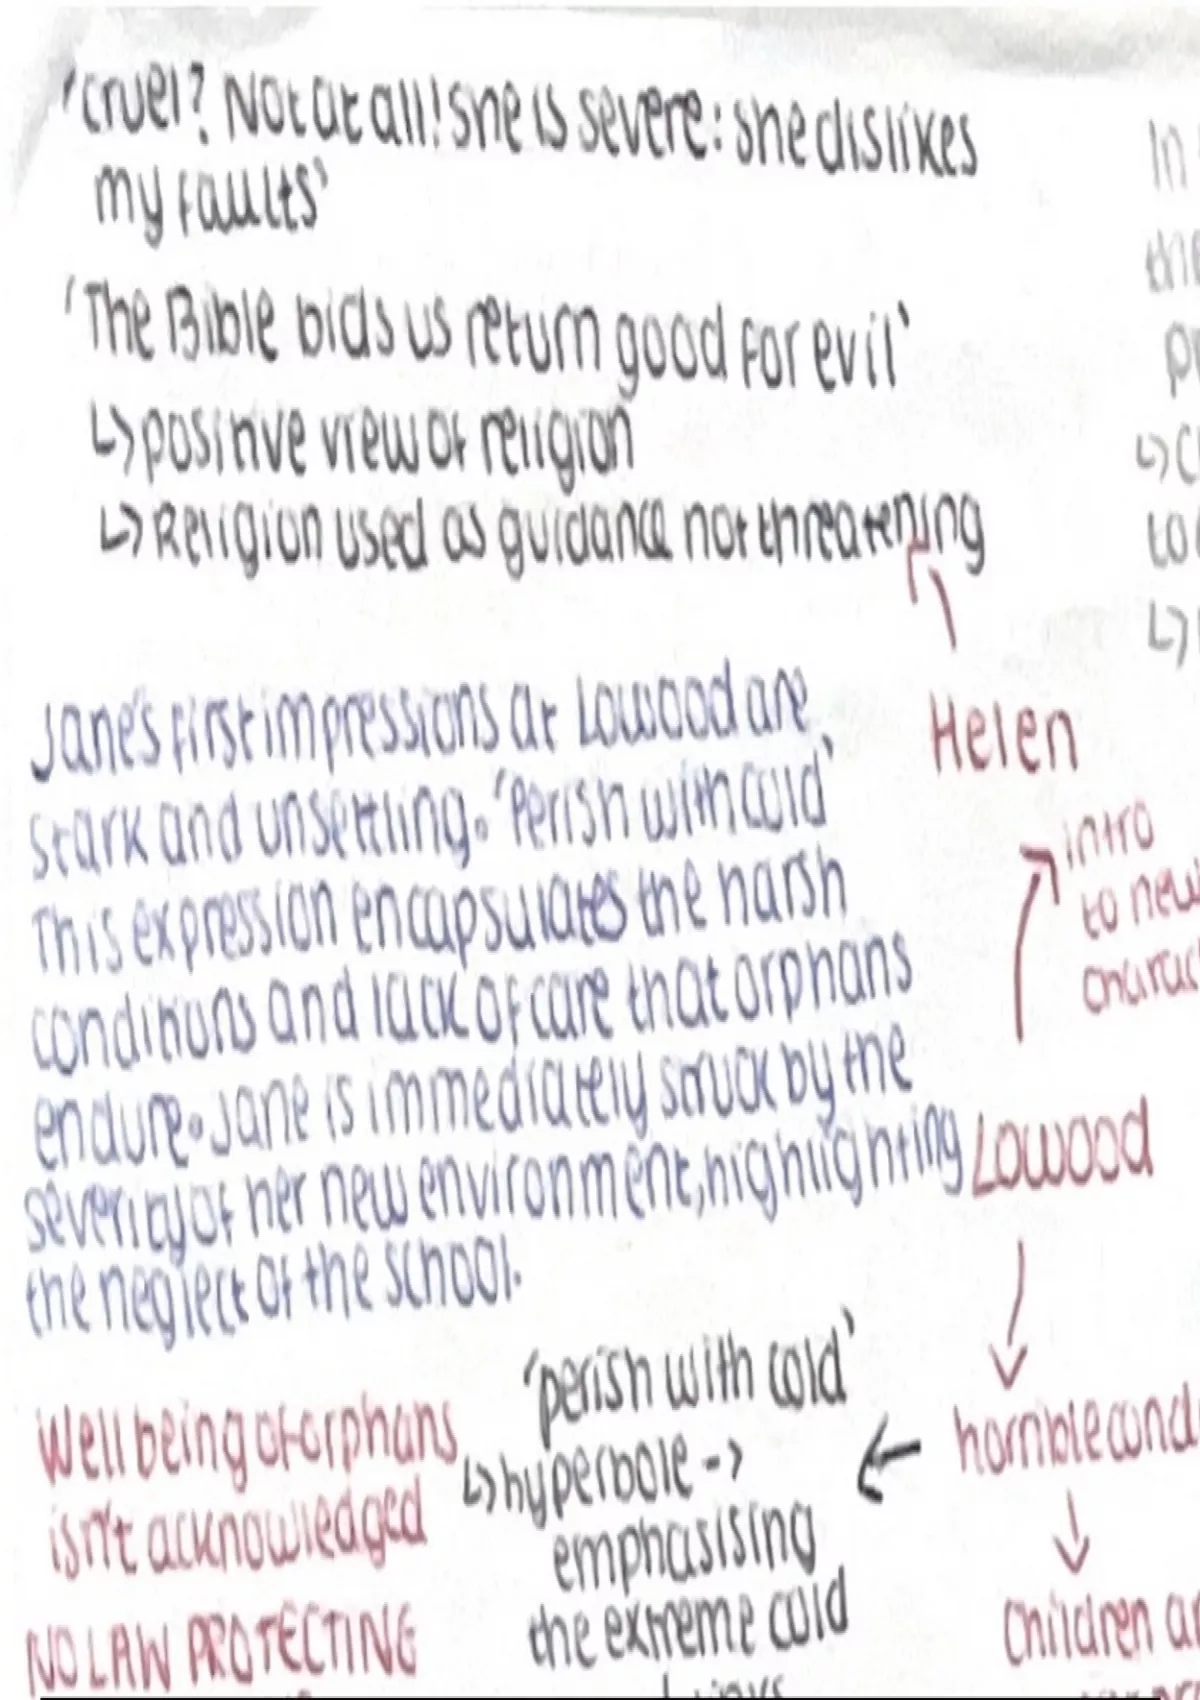 'cruel? Not at all! she is severe: she dislikes
my faults'
'The Bible bids us return good for evil'
↳ positive view of religion
↳ Religion used as guidance not threatening
Jane's first impressions at Lowood are
stark and unsettling. 'Perish with cold'
This expression encapsulates the harsh
conditions and lack of care that orphans
endure. Jane is immediately struck by the
severity of her new environment, highlighting
the neglect of the school.
Well being of orphans
isn't acknowledged
NO LAW PROTECTING
'perish with cold'
↳ hyperbole ->
emphasising
the extreme cold
Helen
intro
to new
Lowood
horrible
Children
In
the
to